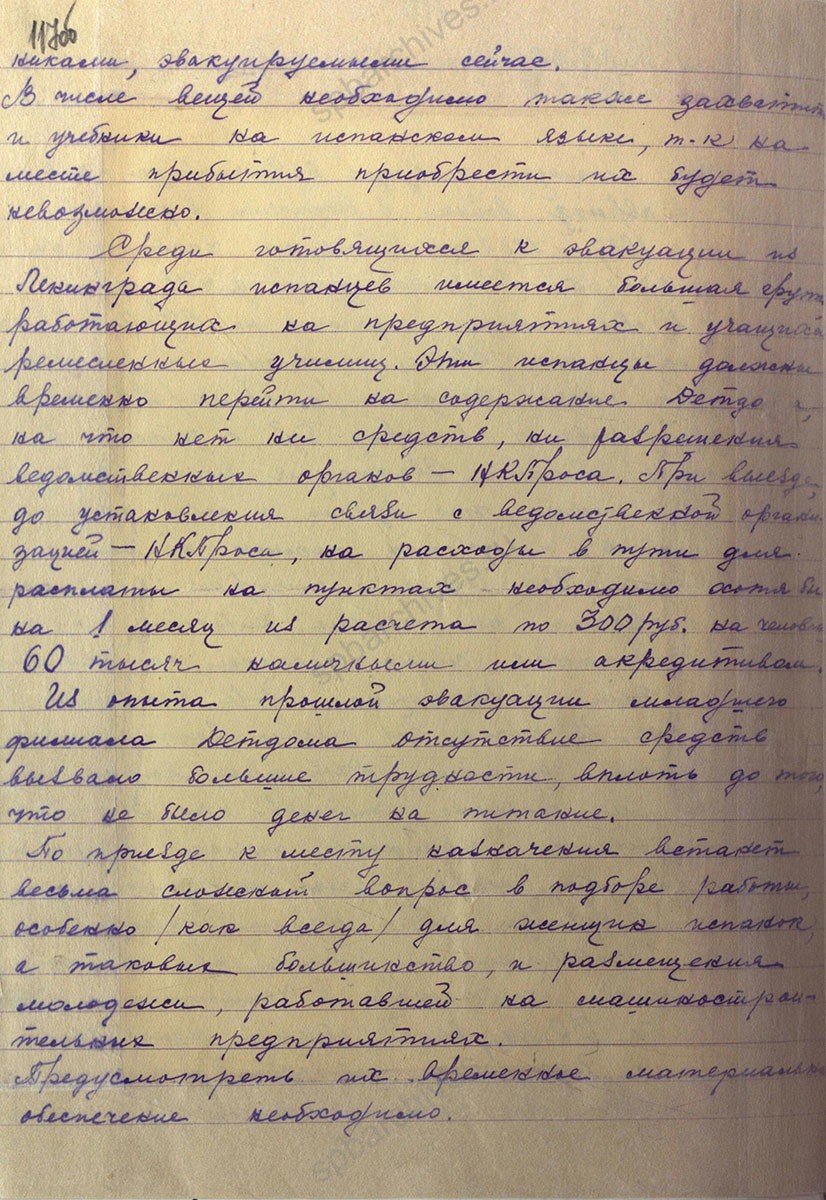 117об
никами, эвакуируемыми сейчас.
В числе вещей необходимо также захватить
и учебники на испанском языке, т-к на
месте прибытия приобрести их будет
невозможно.
Среди готовящихся к эвакуации из
Ленинграда испанцев имеется большая груп
работающих на предприятиях и учащихся
ремесленных училищ. Эти испанцы должны
временно перейти на содержание Детдо
на что нет ни средств, ни разрешения
ведомственных органов — НКПроса. При выезде,
до установления связи с ведомственной органи-
зацией — НКПроса, на расходы в пути для
расплаты на пунктах необходимо хотя бы
на 1 месяц из расчета по 300 руб. на челов
60 тысяч наличными или акредитивом.
Из опыта прошлой эвакуации младшего
филиала Детдома отсутствие средств
вызвало большие трудности, вплоть до того,
что не было денег на питание.
По приезде к месту назначения встанет
весьма сложный вопрос в подборе работы,
особенно /как всегда/ для женщин испанок,
а таковых большинство, и размещения
молодежи, работавшей на машинострои-
тельных предприятиях.
Предусмотреть их временное материальн
обеспечение необходимо.
spbarchives.
spbarchives.
spbarchives.